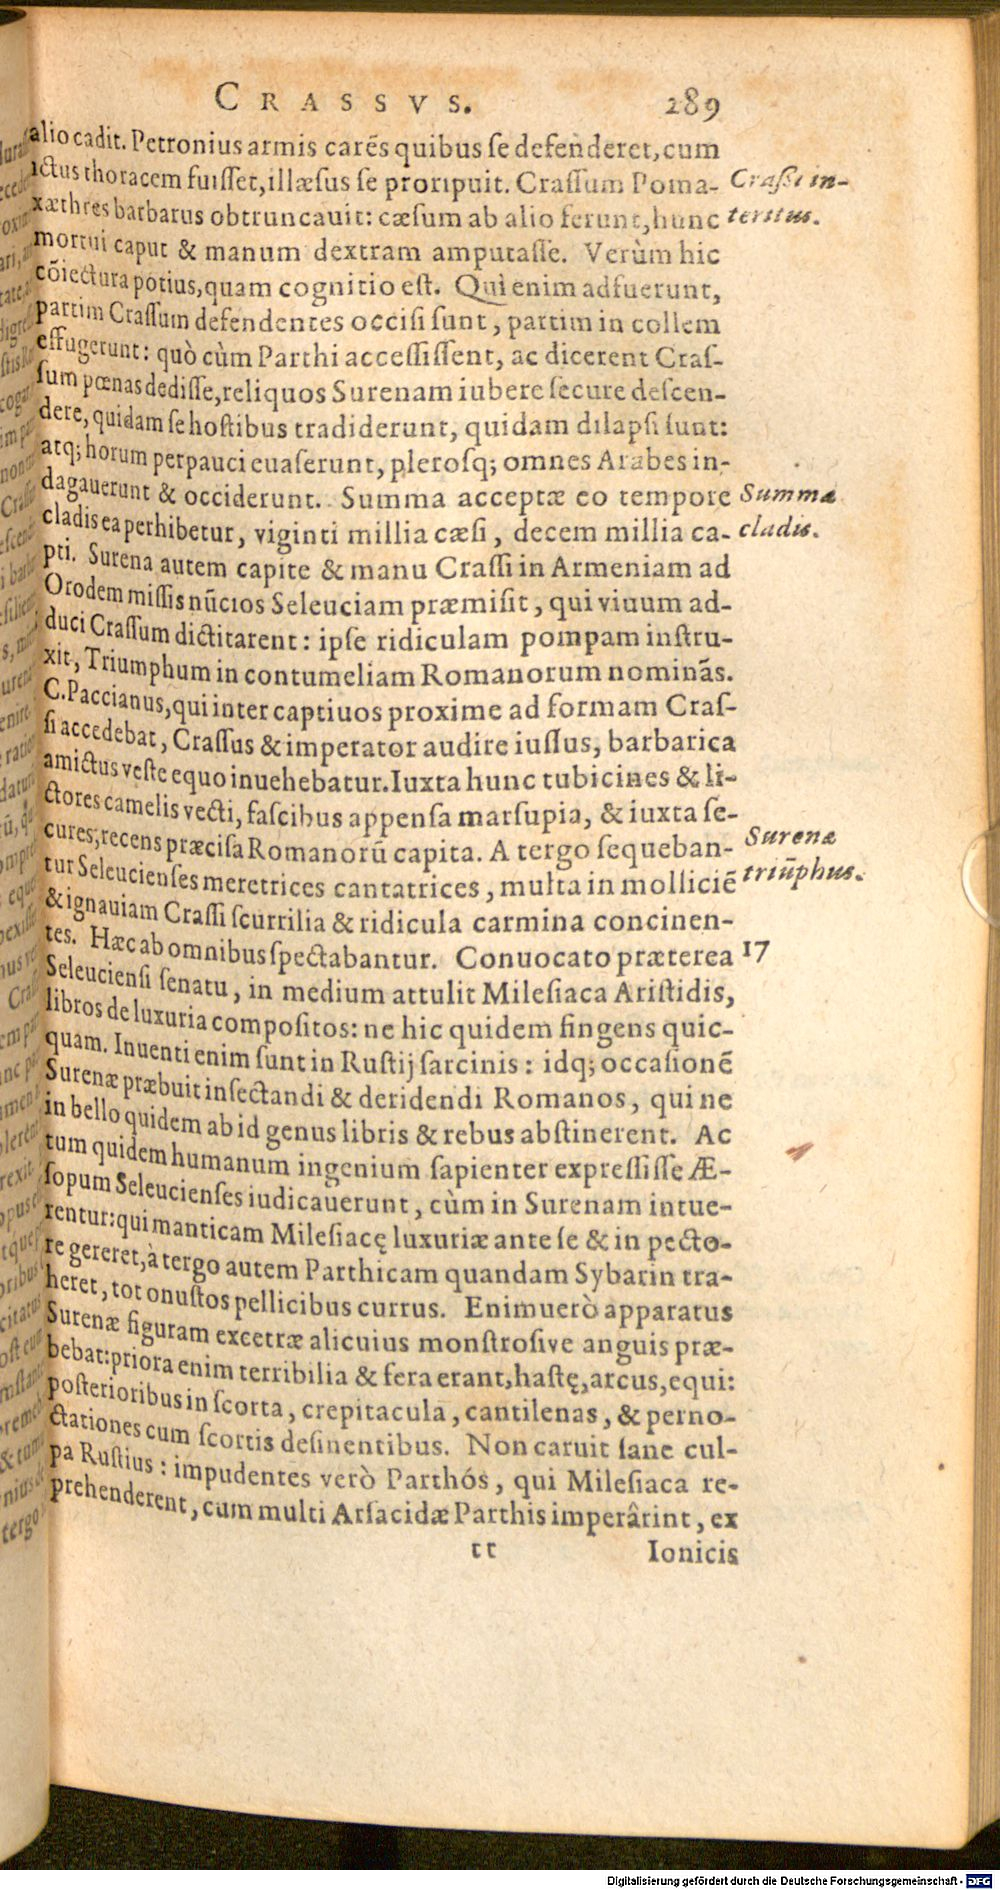 CRASSVS. 289
alio cadit. Petronius armis carẽs quibus se defenderet, cum
ictus thoracem fuisset, illæsus se proripuit. Crassum Poma-
Crassi in-
xæthres barbarus obtruncauit: cæsum ab alio ferunt, hunc
teritus.
mortui caput & manum dextram amputasse. Verùm hic
cõiectura potius, quam cognitio est. Qui enim adfuerunt,
partim Crassum defendentes occisi sunt, partim in collem
effugerunt: quò cùm Parthi accessissent, ac dicerent Cras-
sum pœnas dedisse, reliquos Surenam iubere secure descen-
dere, quidam se hostibus tradiderunt, quidam dilapsi sunt:
atq; horum perpauci euaserunt, plerosq; omnes Arabes in-
dagauerunt & occiderunt. Summa acceptæ eo tempore
Summa
cladis ea perhibetur, viginti millia cæsi, decem millia ca-
cladis.
pti. Surena autem capite & manu Crassi in Armeniam ad
Orodem missis nũcios Seleuciam præmisit, qui viuum ad-
duci Crassum dictitarent: ipse ridiculam pompam instru-
xit, Triumphum in contumeliam Romanorum nominãs.
C. Paccianus, qui inter captiuos proxime ad formam Cras-
si accedebat, Crassus & imperator audire iussus, barbarica
amictus veste equo inuehebatur. Iuxta hunc tubicines & li-
ctores camelis vecti, fascibus appensa marsupia, & iuxta se-
cures, recens præcisa Romanorũ capita. A tergo sequeban-
Surenæ
tur Seleucienses meretrices cantatrices, multa in molliciẽ
triũphus.
& ignauiam Crassi scurrilia & ridicula carmina concinen-
tes. Hæc ab omnibus spectabantur. Conuocato præterea
17
Seleuciensi senatu, in medium attulit Milesiaca Aristidis,
libros de luxuria compositos: ne hic quidem fingens quic-
quam. Inuenti enim sunt in Rustij sarcinis: idq; occasionẽ
Surenæ præbuit insectandi & deridendi Romanos, qui ne
in bello quidem ab id genus libris & rebus abstinerent. Ac
tum quidem humanum ingenium sapienter expressisse Æ-
sopum Seleucienses iudicauerunt, cùm in Surenam intue-
rentur: qui manticam Milesiacę luxuriæ ante se & in pecto-
re gereret, à tergo autem Parthicam quandam Sybarin tra-
heret, tot onustos pellicibus currus. Enimuerò apparatus
Surenæ figuram excetræ alicuius monstrosive anguis præ-
bebat: priora enim terribilia & fera erant, hastę, arcus, equi:
posterioribus in scorta, crepitacula, cantilenas, & perno-
ctationes cum scortis desinentibus. Non caruit sane cul-
pa Rustius: impudentes verò Parthós, qui Milesiaca re-
prehenderent, cum multi Arsacidæ Parthis imperârint, ex
tt Ionicis
Digitalisierung gefördert durch die Deutsche Forschungsgemeinschaft - DFG